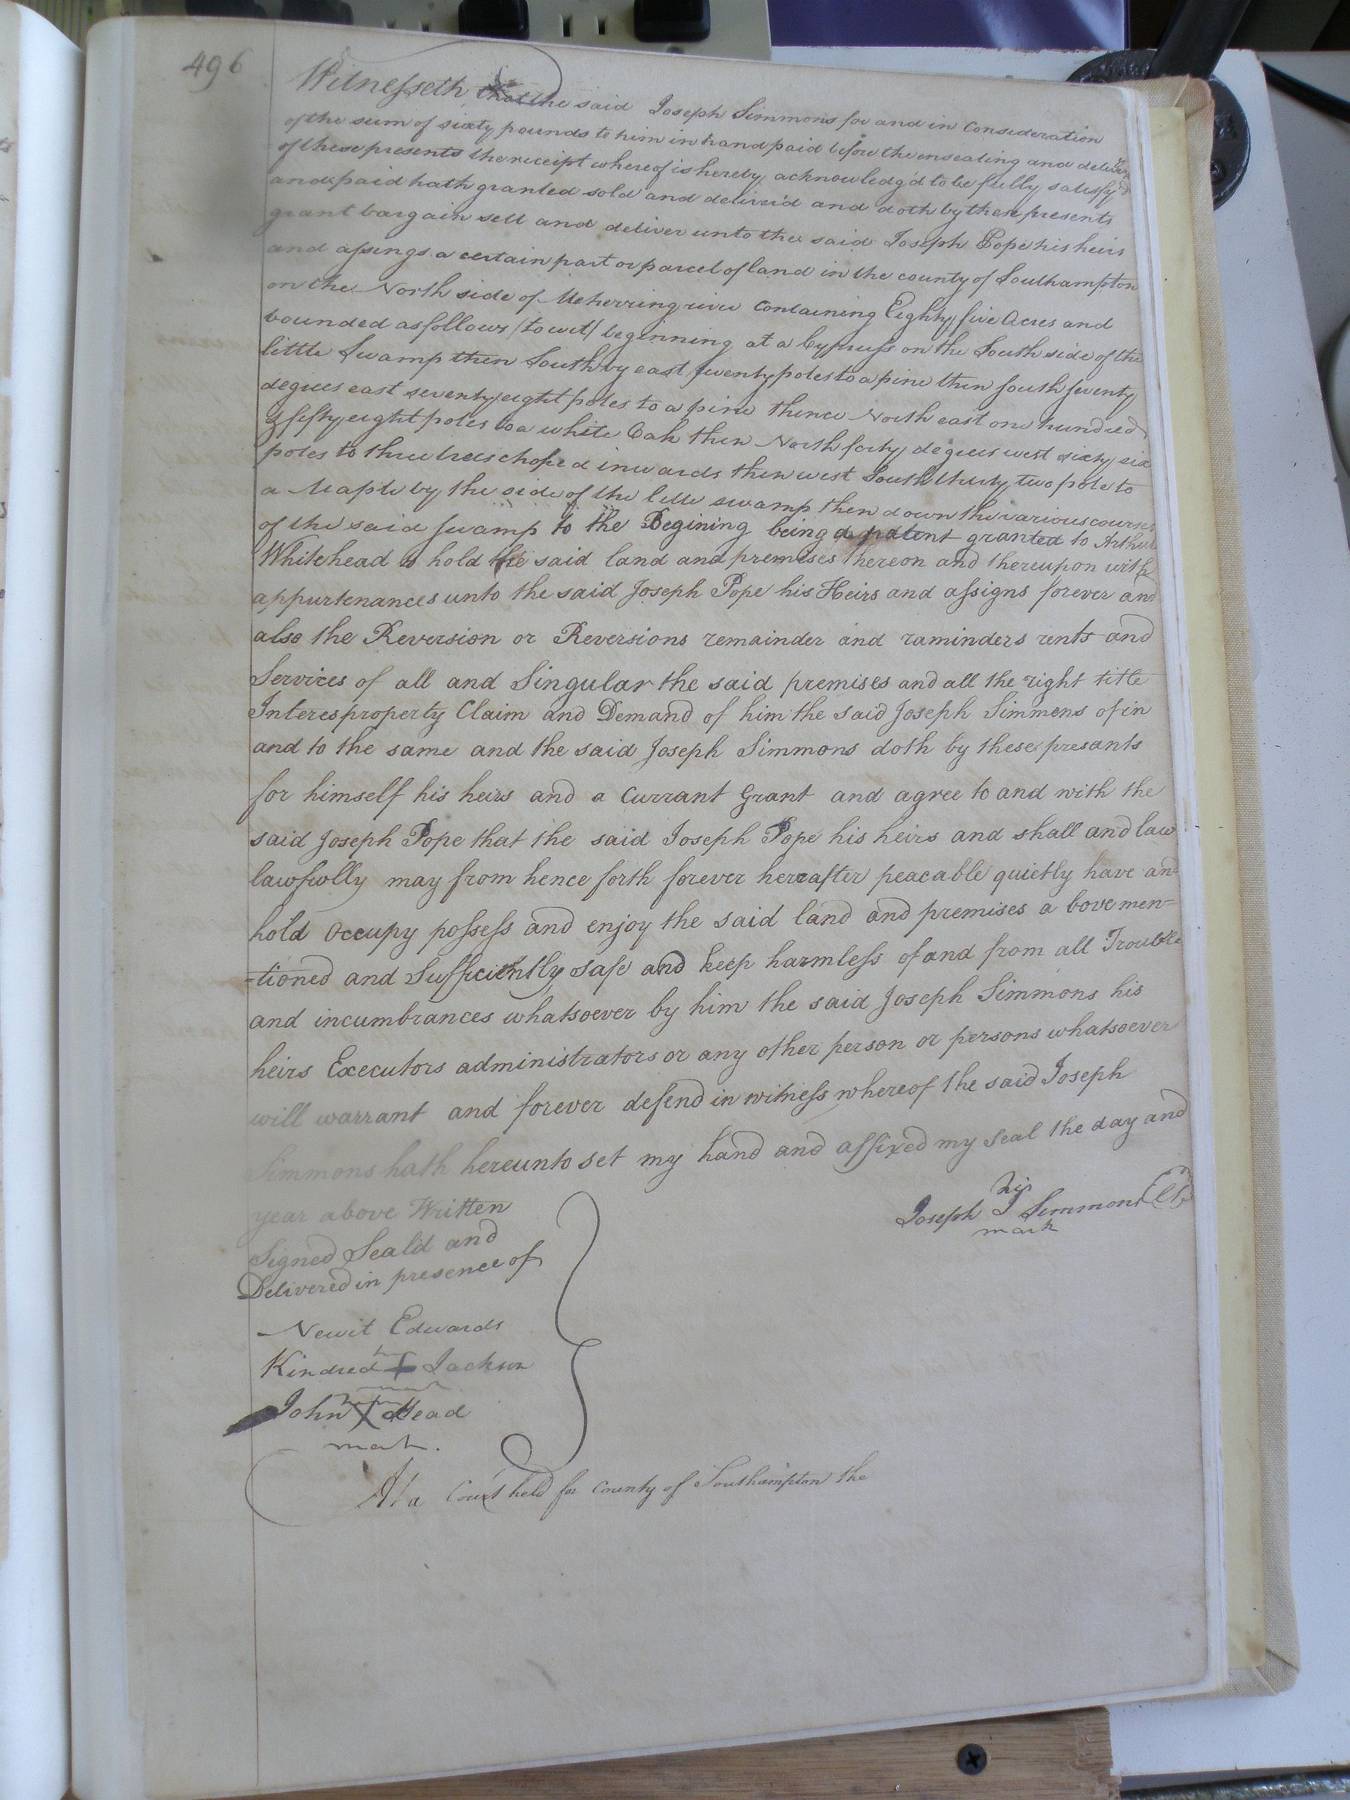 496
Witnesseth that the said Joseph Simmons for and in Consideration
of the sum of sixty pounds to him in hand paid before the ensealing and delivery
of these presents the receipt whereof is hereby acknowledg'd to be fully satisfy'd
and paid hath granted sold and deliver'd and doth by these presents
grant bargain sell and deliver unto the said Joseph Pope his heirs
and assings a certain part or parcel of land in the county of Southampton
on the North side of Meherring river Containing Eighty five Acres and
bounded as follows (to wit) beginning at a Cypruss on the South side of the
little Swamp then South by east twenty poles to a pine then south seventy
degrees east seventy eight poles to a pine thence North east one hundred
& fifty eight poles to a white Oak then North forty degrees west sixty six
poles to three trees choped inwards then west South thirty two pole to
a Maple by the side of the little swamp then down the various courses
of the said swamp to the Begining being a patent granted to Arthur
Whitehead to hold the said land and premises thereon and thereupon with
appurtenances unto the said Joseph Pope his Heirs and assigns forever and
also the Reversion or Reversions remainder and raminders rents and
Services of all and Singular the said premises and all the right title
Interes property Claim and Demand of him the said Joseph Simmens of in
and to the same and the said Joseph Simmons doth by these presants
for himself his heirs and a Currant Grant and agree to and with the
said Joseph Pope that the said Joseph Pope his heirs and shall and law
lawfwlly may from hence forth forever hereafter peacable quietly have and
hold Occupy possess and enjoy the said land and premises a bove men=
-tioned and Sufficiently safe and keep harmless of and from all Trouble
and incumbrances whatsoever by him the said Joseph Simmons his
heirs Executors administrators or any other person or persons whatsoever
will warrant and forever defend in witness whereof the said Joseph
Simmons hath hereunto set my hand and affixed my seal the day and
year above Written
his
Joseph J Simmons
mark
Signed Seald and
Delivered in presence of
Newit Edwards
Kindred + Jackson
John X Head
mark.
At a Court held for County of Southampton the